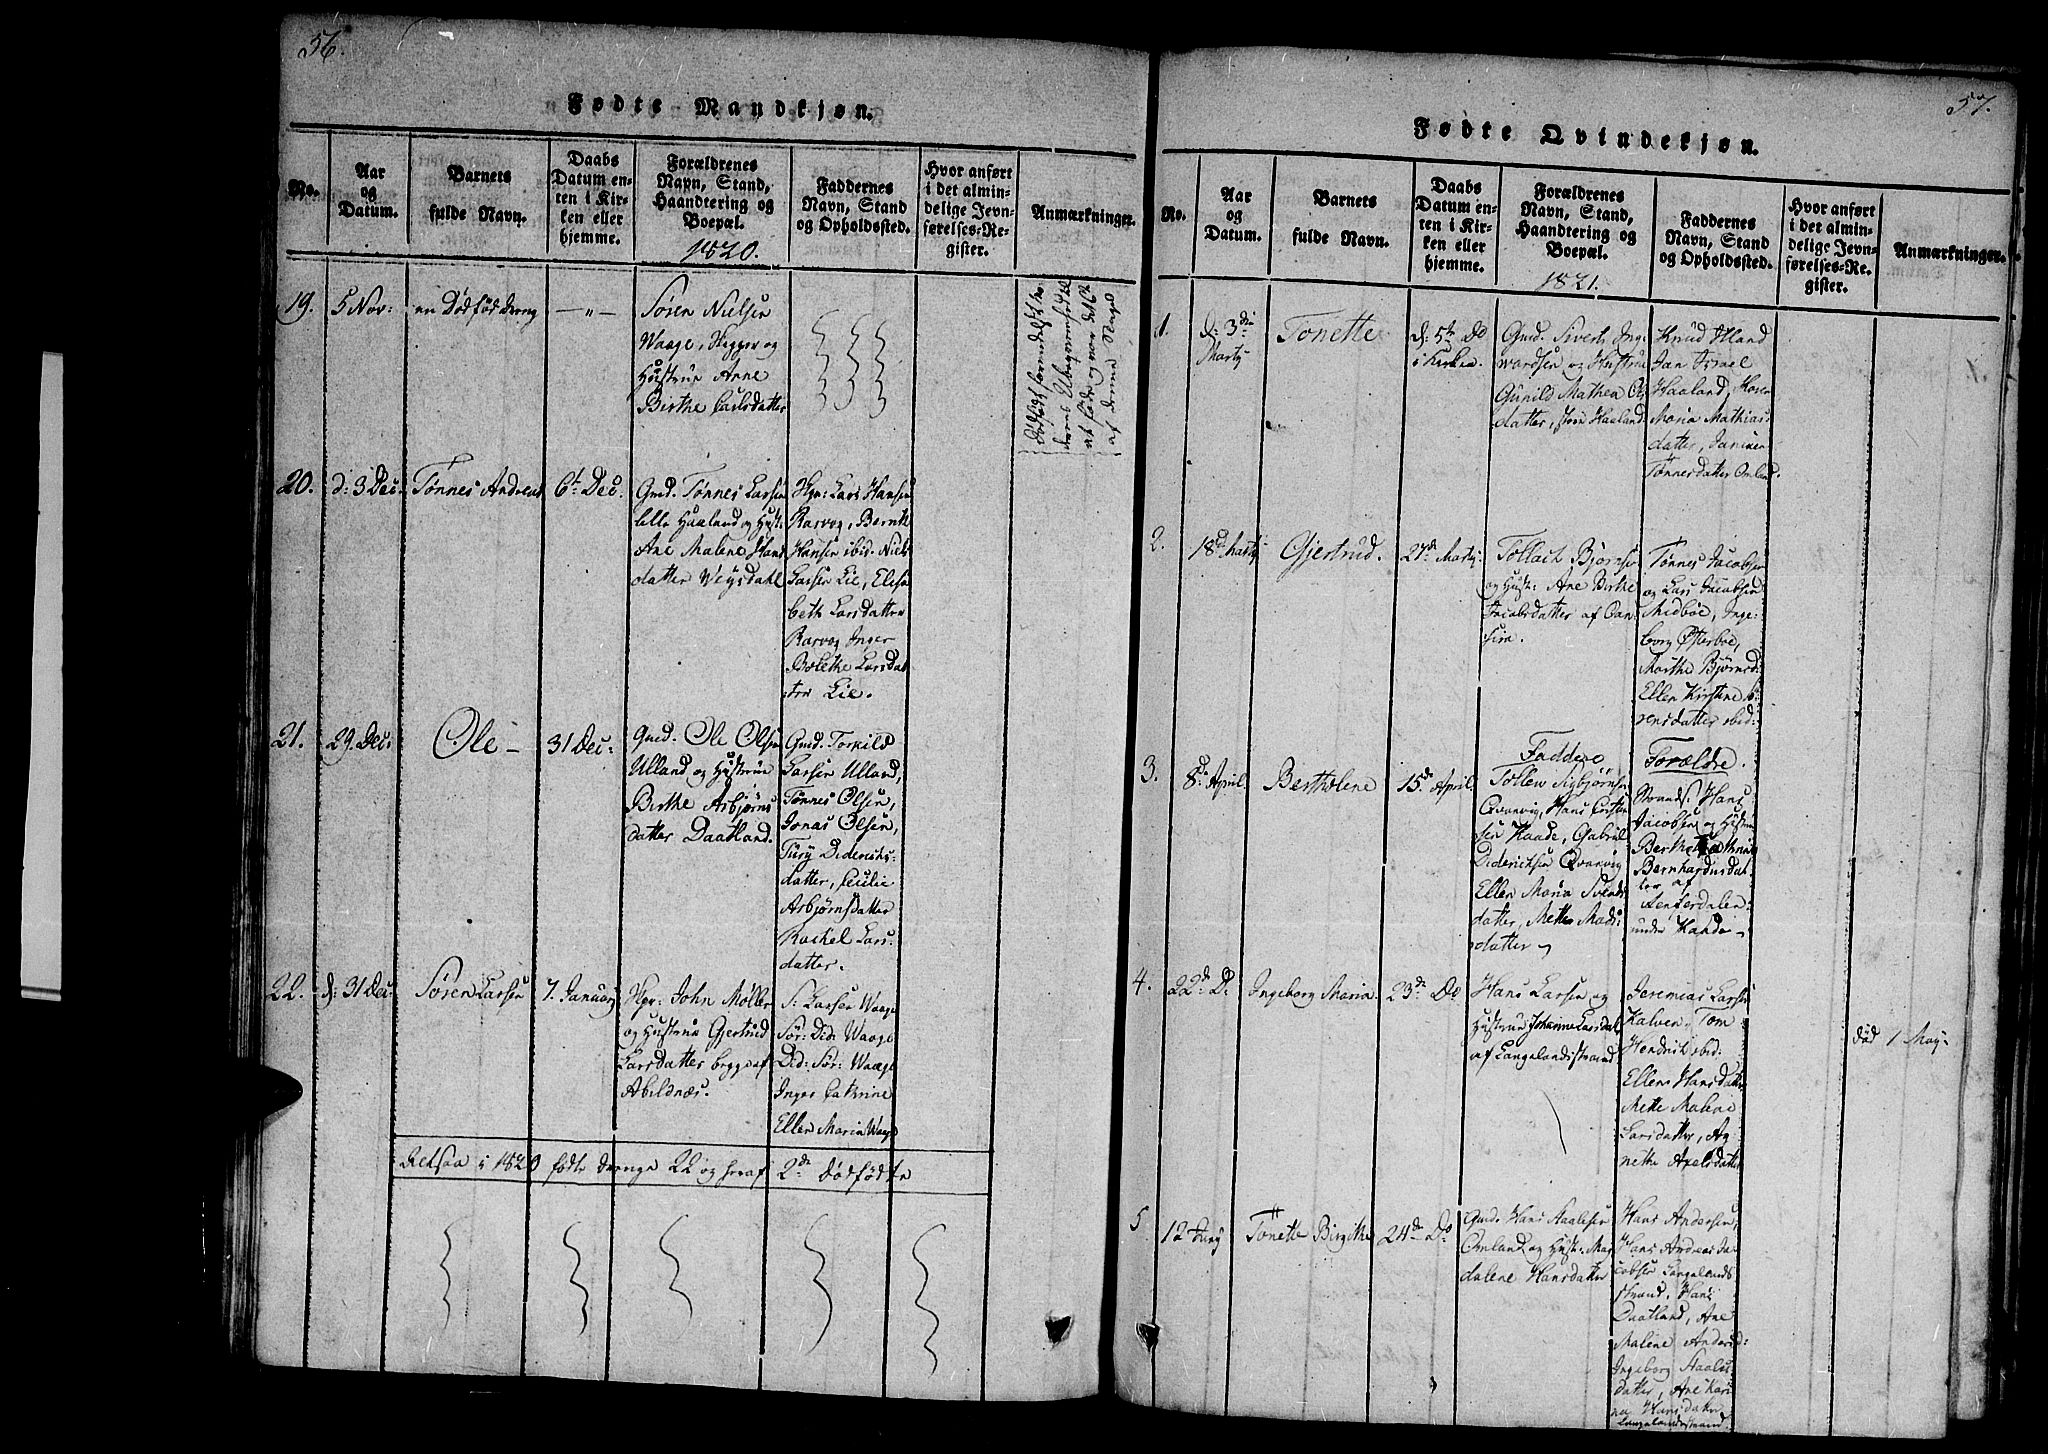 56.
Fødte Mandkjøn.
No.
Aar
og
Datum.
Barnets
fulde Navn.
Daabs
Datum en-
ten i Kir-
ken eller
hjemme.
Forældrenes
Navn, Stand,
Haandtering og
Boepæl.
1820.
Faddernes
Navn, Stand
og Opholdssted.
Hvor anført
i det almin-
delige Jevn-
førelses-Re-
gister.
Anmærkninger.
19.
5 Nov:
en Dødfød Dreng
— „ —
Søren Nielsen
Waage, Hegger og
Hustrue Anne
Birthe Carlsdatter
af denne
20.
d: 3 Dec.
Tønnes Andreas
6t Dec.
Gmd. Tønnes Larsen
lille Haaland og Hust:
Ane Malene Hans
datter Weysdahl
Hgr: Lars Hansen
Rarvog, Bernt
Hansen ibid. Niels
Larsen Lie, Elisa
beth Larsdatter
Rarvog Inger
Bolethe Larsdat
ter Lie.
21.
29. Dec:
Ole —
31 Dec:
Gmd. Ole Olsen
Ulland og Hustrue
Birthe Asbjørns
datter Daatland.
Gmd. Torkild
Larsen Ulland,
Tønnes Olsen,
Jonas Olsen,
Tury Diderichs:
datter, Cecilie
Asbjørnsdatter
Rachel Lars:
datter.
22.
d: 31 Dec:
Søren Larsen
7. Januarj
Hgr: John Møller
og Hustrue Gjertrud
Larsdatter begge af
Abildnæs.
S: Larsen Waage
Sør: Did: Waage
Did: Sør: Waage
Inger Cathrine
Ellen Maria Waage
Altsaa i 1820 fødte Drenge 22 og heraf 2de Dødfødte
57.
Fødte Qvindekjøn.
No.
Aar
og
Datum.
Barnets
fulde Navn.
Daabs
Datum en-
ten i Kir-
ken eller
hjemme.
Forældrenes
Navn, Stand,
Haandtering og
Boepæl.
1821.
Faddernes
Navn, Stand
og Opholdssted.
Hvor anført
i det almin-
delige Jevn-
førelses-Re-
gister.
Anmærkninger.
1.
d: 3die
Martj
Tonette
d: 5te Do
i Kirken.
Gmd. Sivert Ing
wardsen og Hustrue
Gunild Mathea Ols
datter, store Haaland.
Knud Hland
Jan Israel
Haaland, Karen
Maria Mathias
datter, Janiken
Tønnesdatter Omland.
2.
18de Martj
Gjertrud.
27de Martj
Tollach Bjørnsen
og Hust: Ane Birthe
Jacobsdatter af Oan-
sira.
Tønnes Jacobsen
og Lars Jacobsen
Midbøe, Inge-
borg Østerbøe,
Marthe Bjørnsd:
Ellen Kirstine Sø-
rensdatter ibid:
3.
8de April
Bertholene
15de April
Faddere
Tollew Sigbjørnsen
Qvanvig, Hans Carsten
sen Haade, Gabriel
Didericksen Qvanvig
Ellen Maria Svends
datter, Mette Mads:
datter
Forældre.
Strands: Hans
Jacobsen og Hustrue
Berthe Cathrine
Bernhardusdat
ter af
under Handø —
4.
22de D.
Ingeborg Maria.
23de Do
Hans Larsen og
Hustrue Johanne Larsdat
af Langelandsstrand
Jeremias Larsen
Kalven, Tom
Hendrik ibid:
Ellen Hansdatter
Mette Malene
Larsdatter, Ag
nethe Axelsdatter
død 1 May.
5
12 Junj
Tonette Birgithe
24de Do
Gmd. Hans Aaalesen
Omland og Hust: Mag
dalene Hansdatter
Hans Andersen,
Hans Andreas Ja
cobsen Langelands
strand, Hans
Daatland, Ane
Malene Andersd:
Ingeborg Aaales
datter, Ane Kari
na Hansdatter
Langelandsstrand